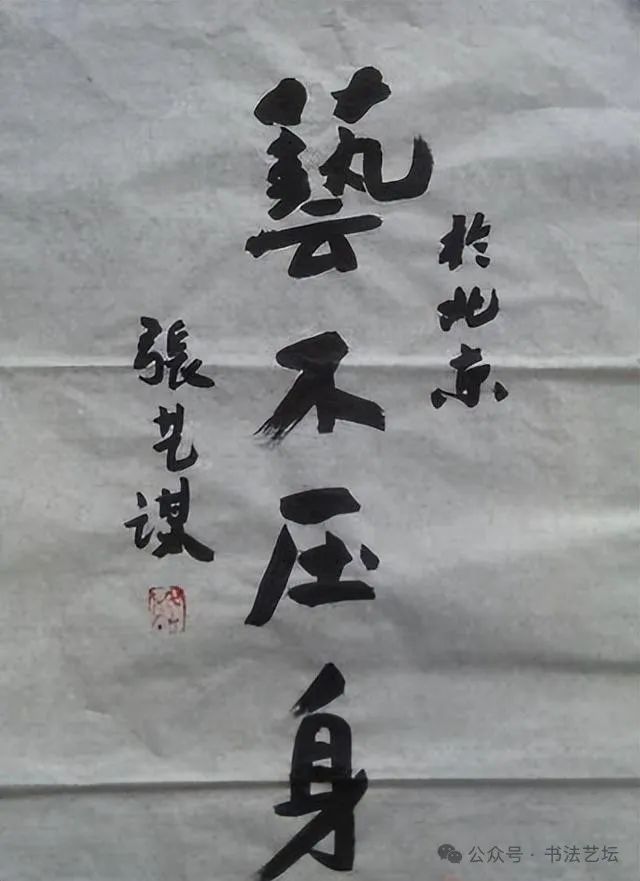 於北京
藝不压身
張艺谋
公众号·书法艺坛